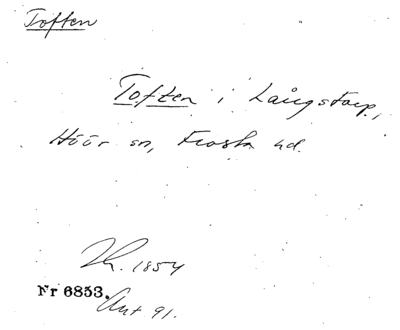 Toften
Toften i Långstorp,
Höör sn, Frosta hd.
1854
Nr 6853.
Ant 91.